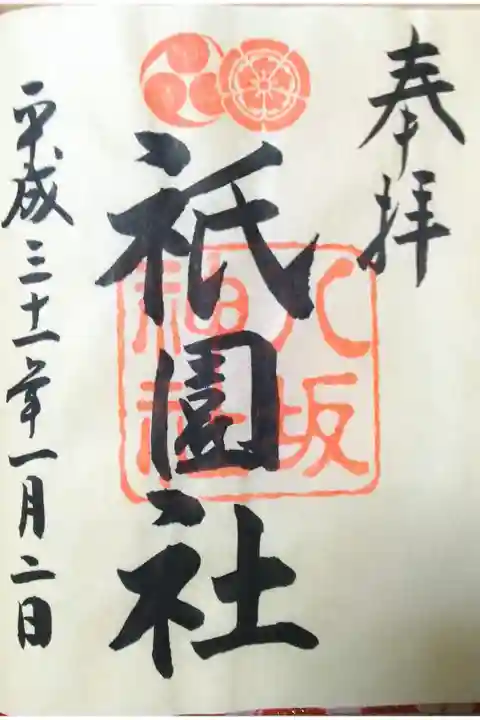 奉拝
祇園社
八坂
神社
平成三十一年一月二日